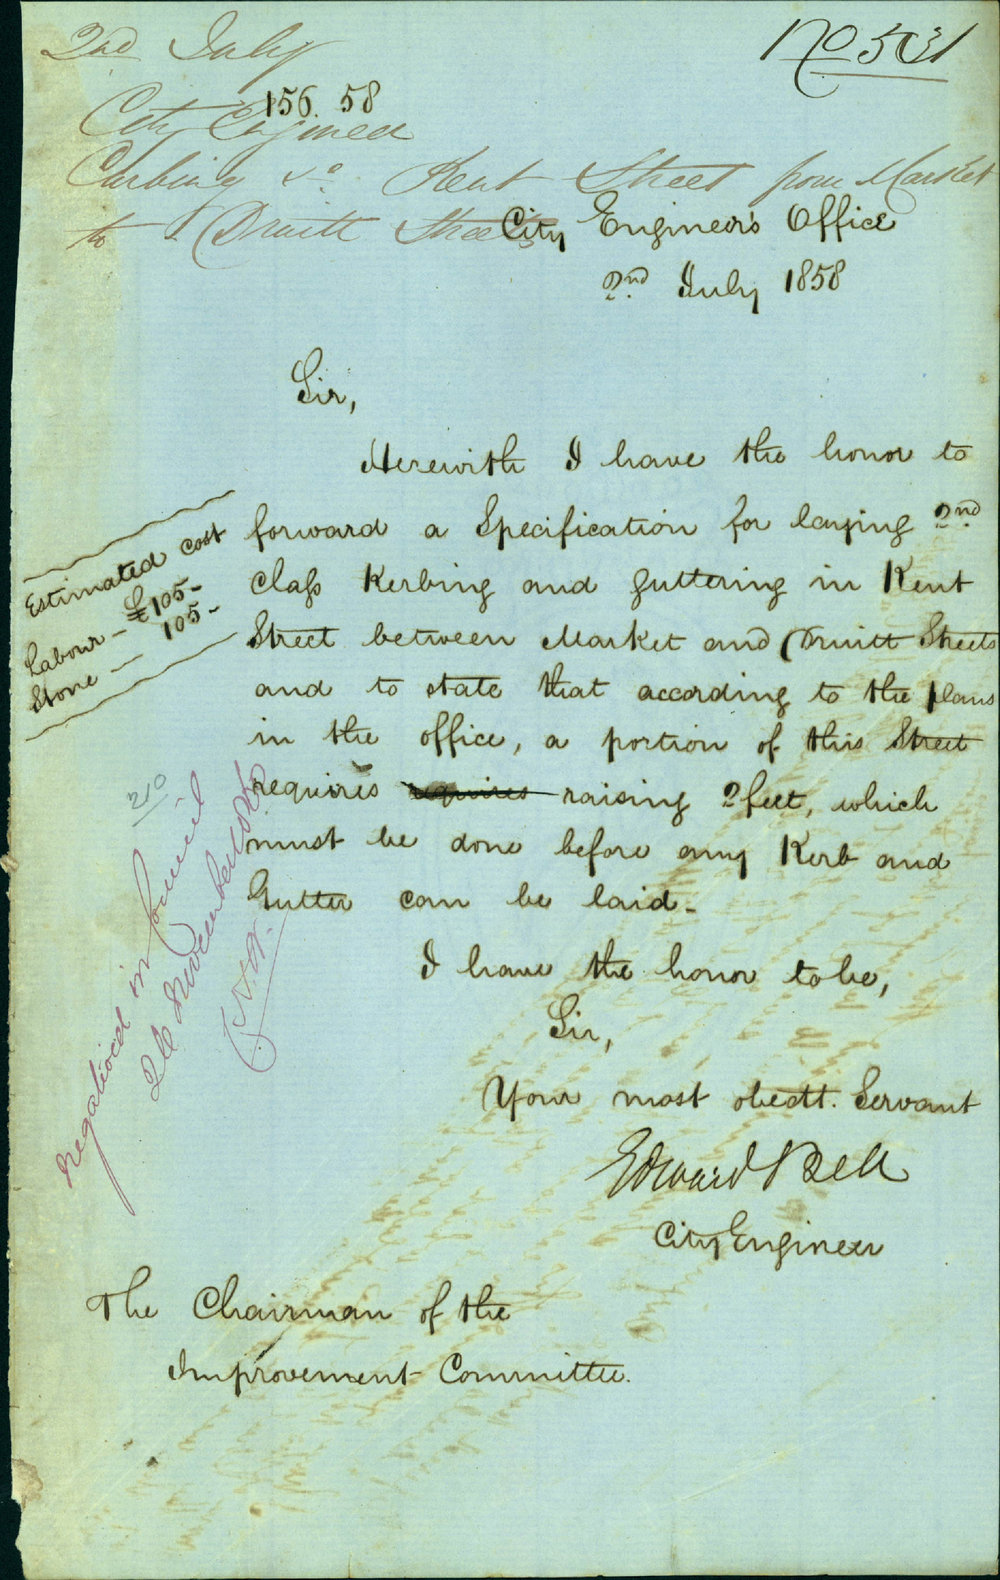 2nd July
No 531
156. 58
City Engineer
Curbing &c. Kent Street from Market
to Druitt Streets
City Engineer's Office
2nd July 1858
Sir,
Herewith I have the honor to
forward a Specification for laying 2nd
Class Kerbing and guttering in Kent
Street between Market and Druitt Streets
and to state that according to the plans
in the office, a portion of this Street
requires requires raising 2 feet, which
must be done before any Kerb and
Gutter can be laid-
Estimated cost
Labour - £105-
Stone - 105-
210
Negatived in Council
I have the honor to be,
Sir,
Your most obedtt. Servant
Edward Bell
City Engineer
The Chairman of the
Improvement Committee.